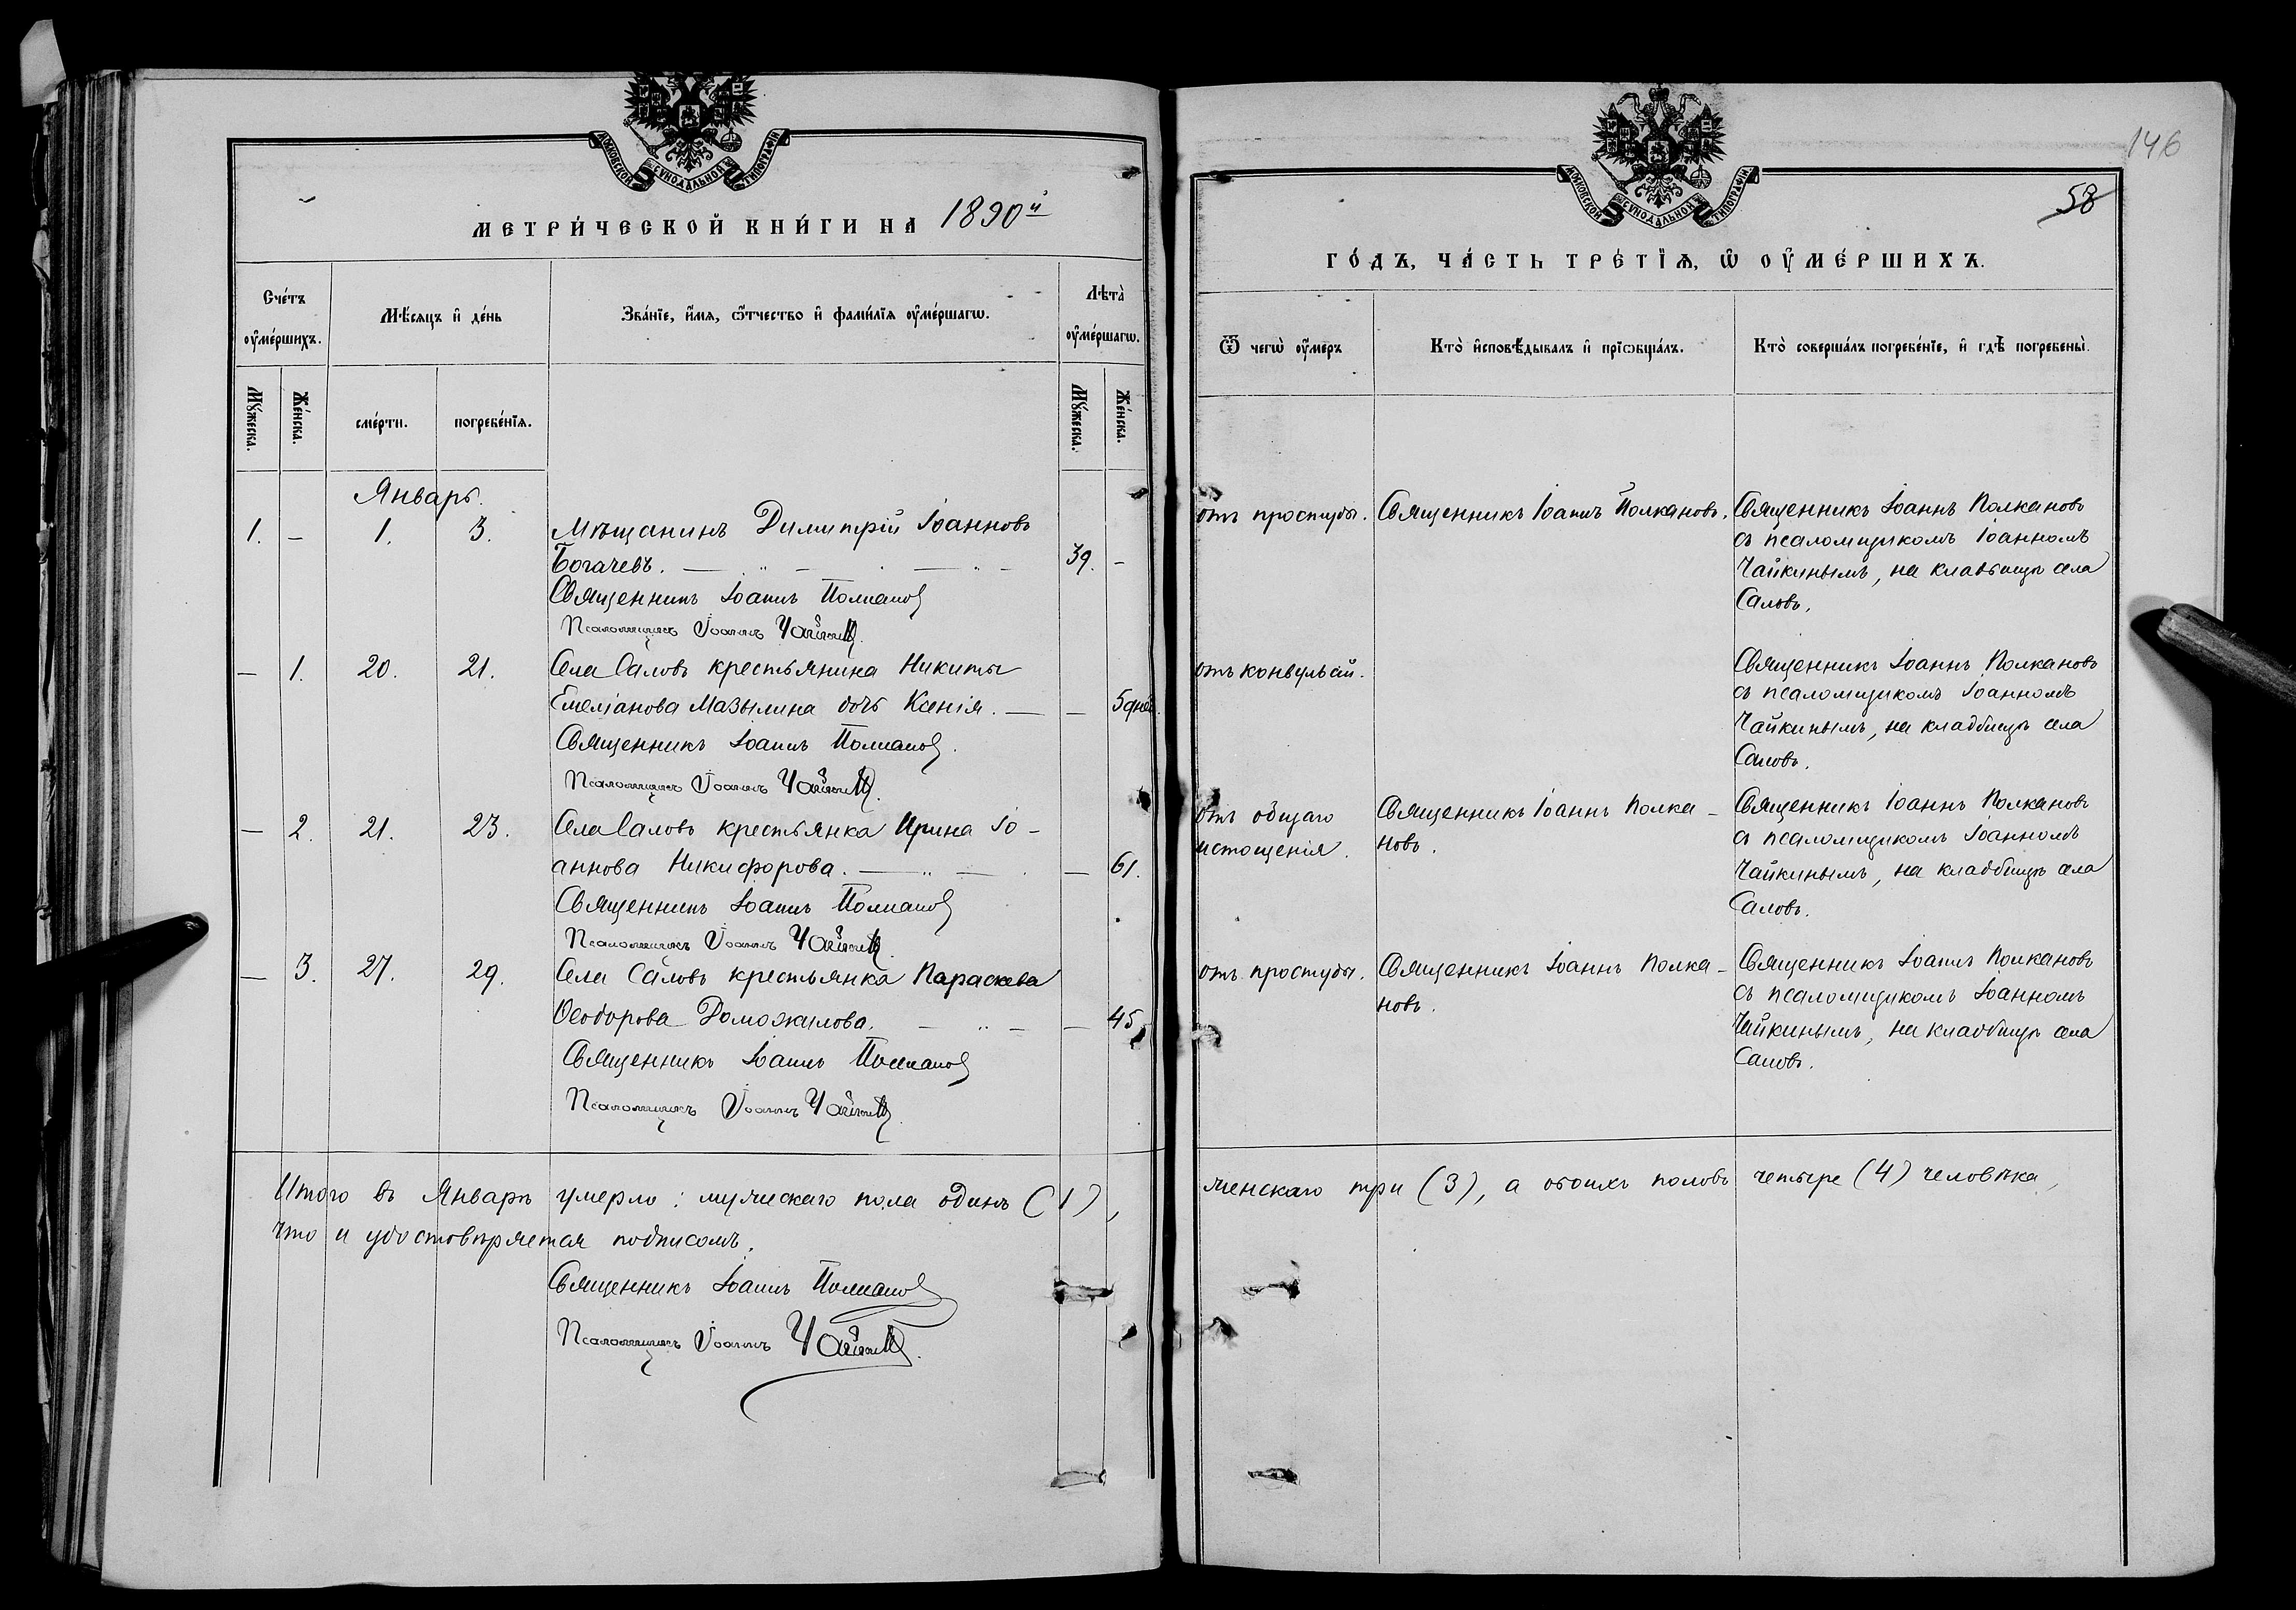 МОСКОВСКОЙ СѴНОДАЛЬНОЙ ТИПОГРАФІИ
МЕТРИ́ЧЕСКОЙ КНИ́ГИ НА 1890й
Сче́тъ ᲂу҆ме́ршихъ.
Мѣ́сяцъ и҆ де́нь
Зва́нїе, и҆́мѧ, ѻ҆́тчество и҆ фами́лїѧ ᲂу҆ме́ршагѡ.
Лѣта̀ ᲂу҆ме́ршагѡ.
Мꙋ́жеска.
Же́нска.
сме́рти.
погребе́нїѧ.
Мꙋ́жеска.
Же́нска.
Январь.
1. – 1. 3. Мѣщанинъ Димитрій Іоанновъ
Богачевъ. 39. –
Священникъ Іоаннъ Полкановъ
Псаломщикъ Іоаннъ Чайкинъ
– 1. 20. 21. Села Саловъ крестьянина Никиты
Емеліанова Мазылина дочь Ксенія. – 5 дней.
Священникъ Іоаннъ Полкановъ.
Псаломщикъ Іоаннъ Чайкинъ.
– 2. 21. 23. Села Саловъ крестьянка Ирина Іо-
аннова Никифорова. – 61.
Священникъ Іоаннъ Полкановъ
Псаломщикъ Іоаннъ Чайкинъ
– 3. 27. 29. Села Саловъ крестьянка Параскева
Ѳеодорова Доможилова. – 45
Священникъ Іоаннъ Полкановъ
Псаломщикъ Іоаннъ Чайкинъ.
Итого въ Январѣ умерло: мужескаго пола одинъ (1),
что и удостовѣряется подписомъ.
Священникъ Іоаннъ Полкановъ
Псаломщикъ Іоаннъ Чайкинъ.
146
58
МОСКОВСКОЙ СѴНОДАЛЬНОЙ ТИПОГРАФІИ
ГО́ДЪ, ЧА́СТЬ ТРЕ́ТЇѦ, Ѡ҆ ОУ҆МЕ́РШИХЪ.
Ѿ чегѡ̀ ᲂу҆́меръ
Кто̀ и҆сповѣ́дывалъ и҆ прїѡбща́лъ.
Кто̀ соверша́лъ погребе́нїе, и҆ гдѣ̀ погребены̀.
отъ простуды. Священникъ Іоаннъ Полкановъ. Священникъ Іоаннъ Полкановъ
съ псаломщикомъ Іоанномъ
Чайкинымъ, на кладбищѣ села
Саловъ.
отъ конвульсій. Священникъ Іоаннъ Полкановъ
съ псаломщикомъ Іоанномъ
Чайкинымъ, на кладбищѣ села
Саловъ.
отъ общаго Священникъ Іоаннъ Полка- Священникъ Іоаннъ Полкановъ
истощенія. новъ. съ псаломщикомъ Іоанномъ
Чайкинымъ, на кладбищѣ села
Саловъ.
отъ простуды. Священникъ Іоаннъ Полка- Священникъ Іоаннъ Полкановъ
новъ. съ псаломщикомъ Іоанномъ
Чайкинымъ, на кладбищѣ села
Саловъ.
женскаго три (3), а обоихъ половъ четыре (4) человѣка,